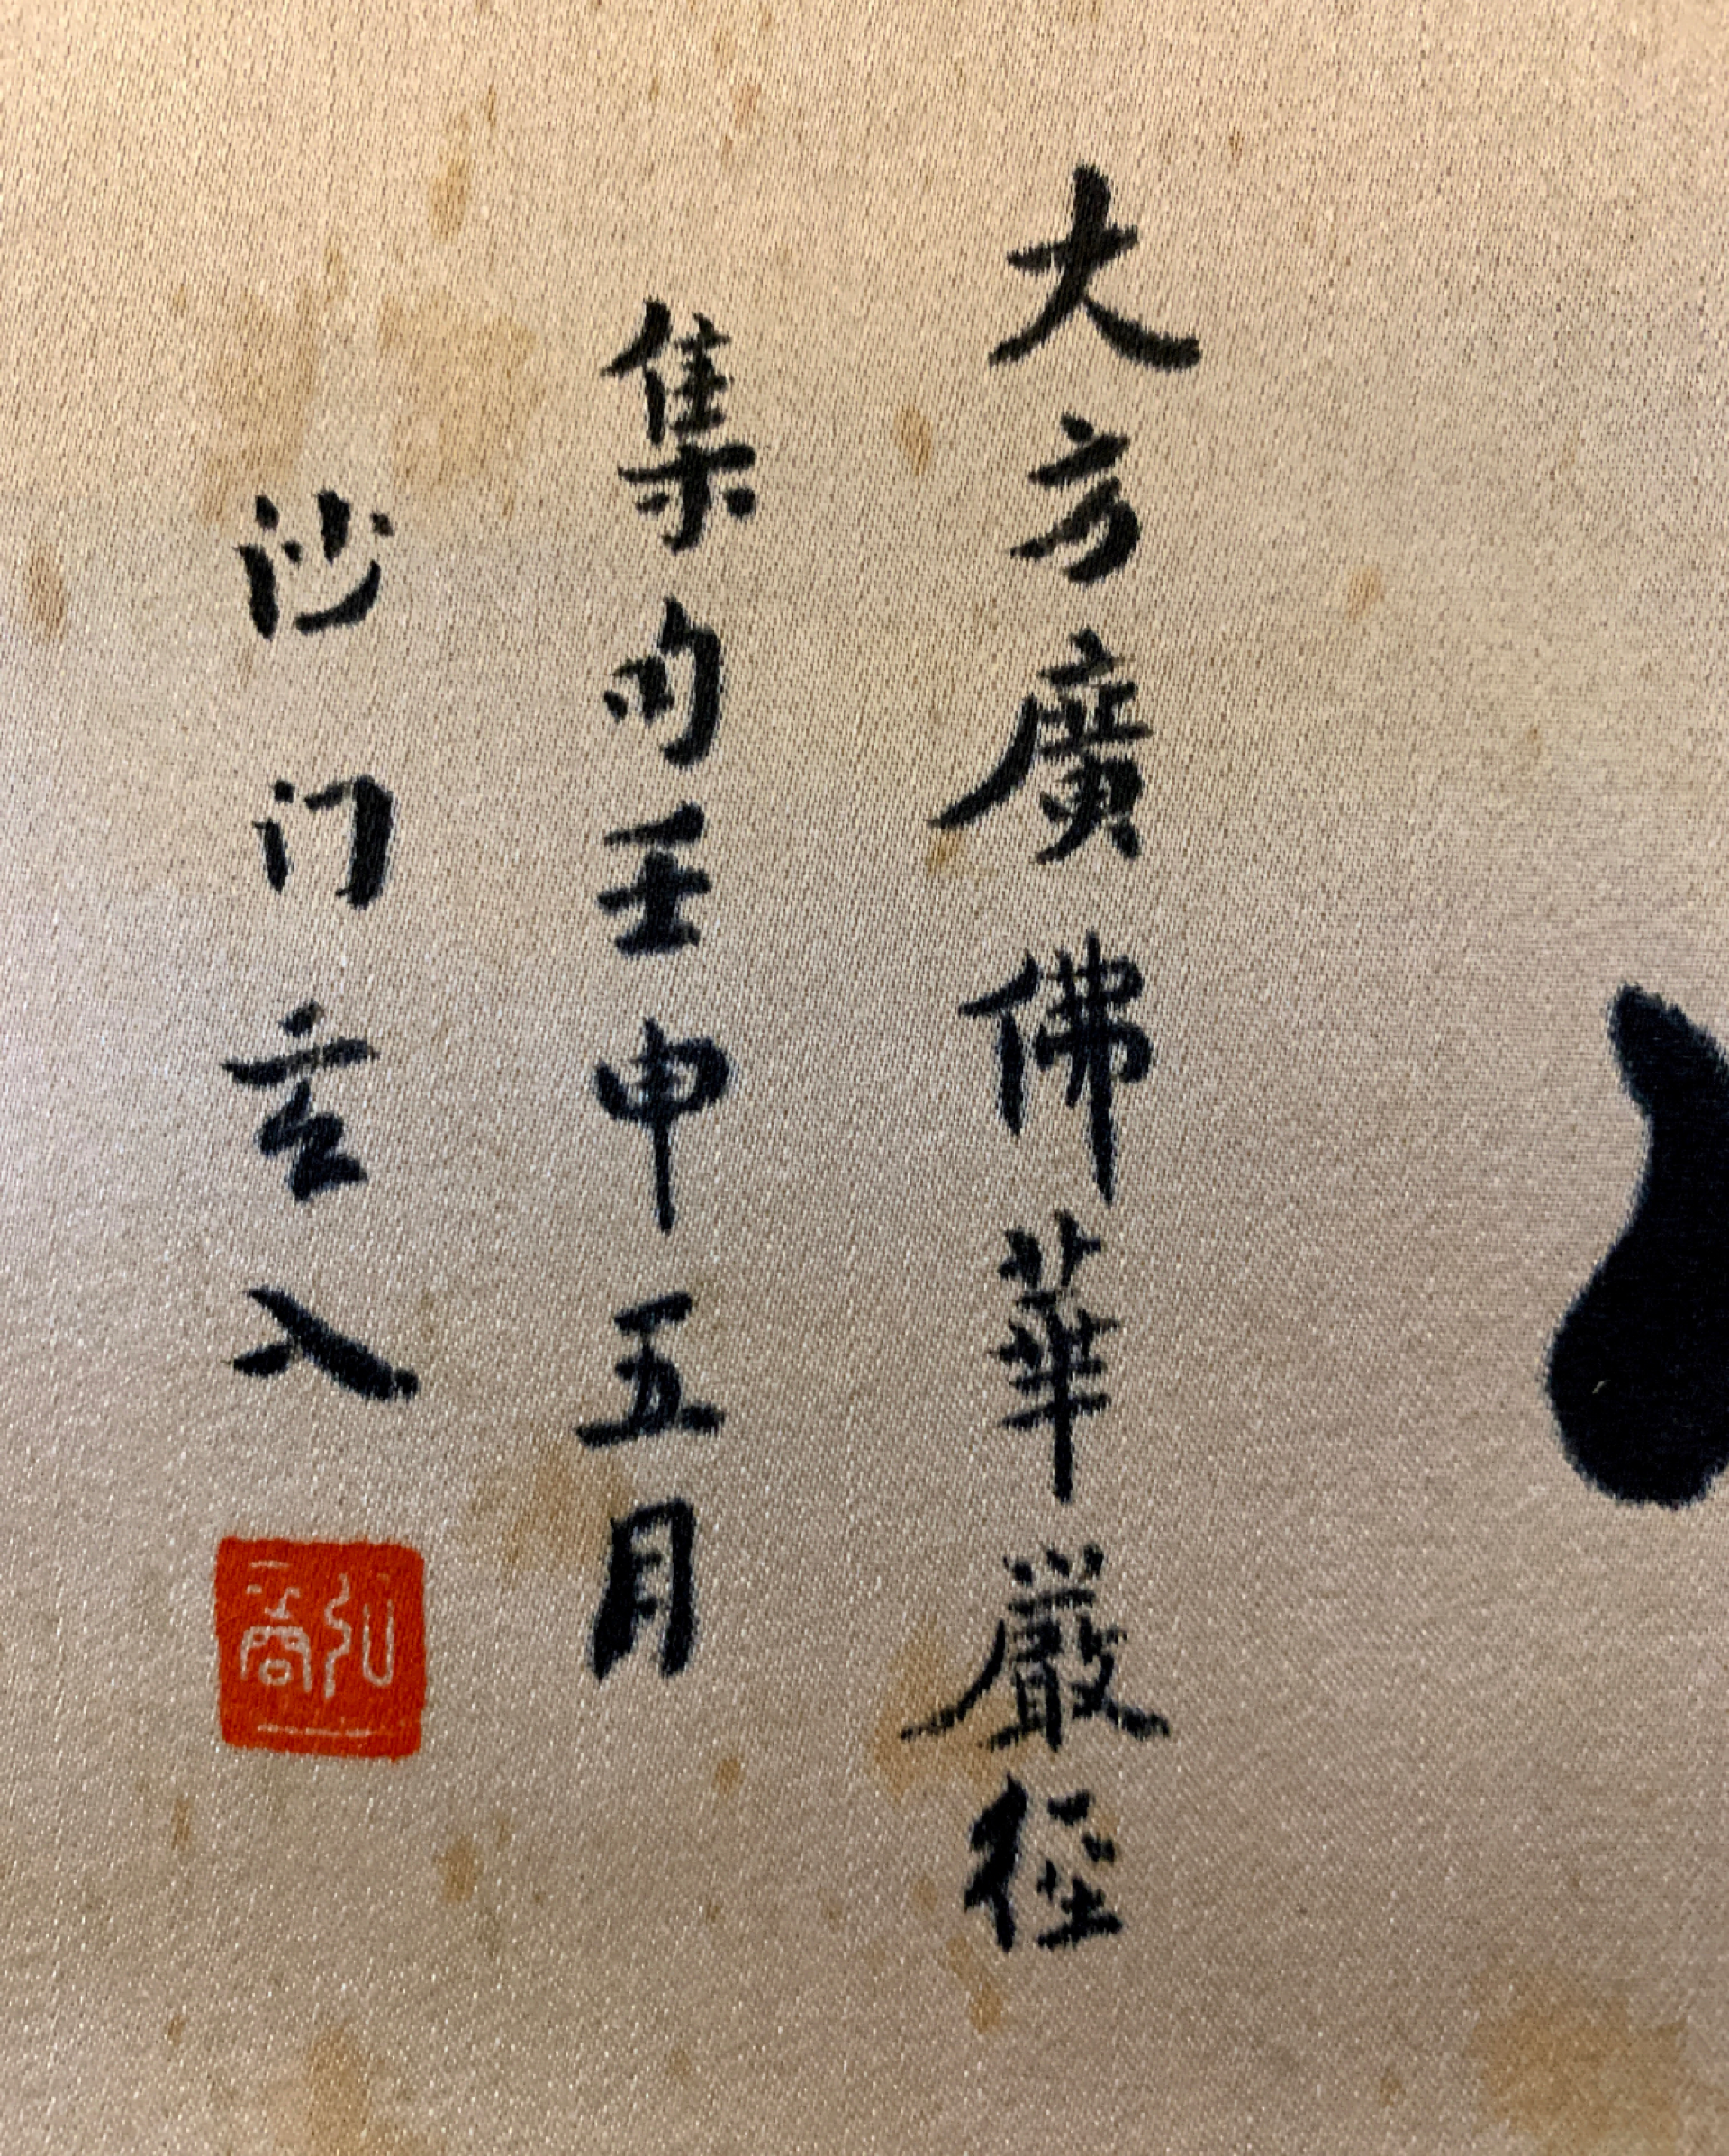 大方廣佛華嚴經
集句壬申五月
沙门玄入
弘裔